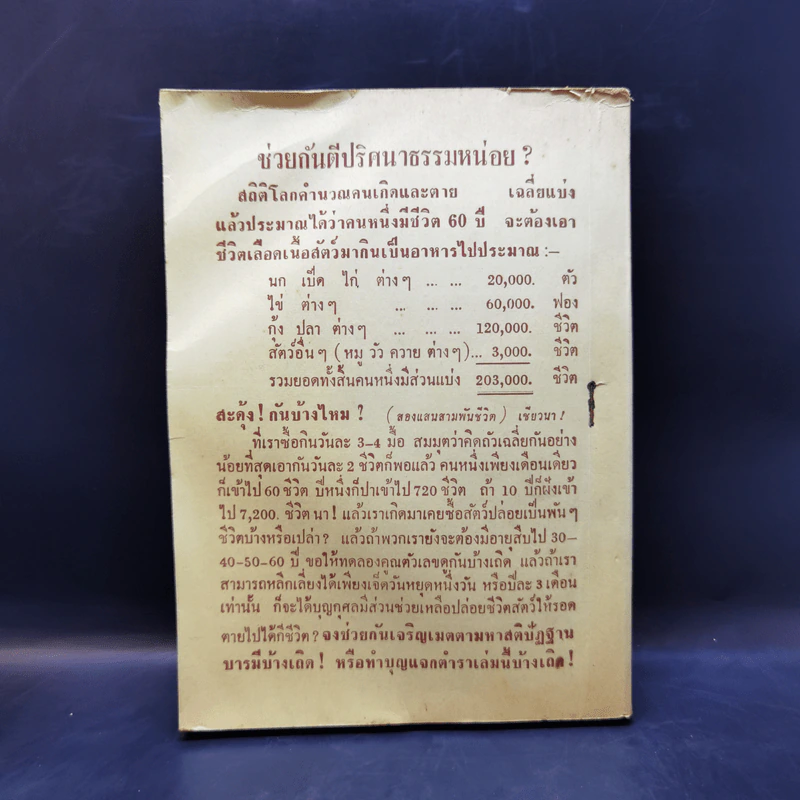 ช่วยกันตีปริศนาธรรมหน่อย ?
สถิติโลกคำนวณคนเกิดและตาย เฉลี่ยแบ่ง
แล้วประมาณได้ว่าคนหนึ่งมีชีวิต 60 ปี จะต้องเอา
ชีวิตเลือดเนื้อสัตว์มากินเป็นอาหารไปประมาณ :–
นก เป็ด ไก่ ต่างๆ ... ... 20,000. ตัว
ไข่ ต่างๆ ... ... ... 60,000. ฟอง
กุ้ง ปลา ต่างๆ ... ... ... 120,000. ชีวิต
สัตว์อื่นๆ (หมู วัว ควาย ต่างๆ)... 3,000. ชีวิต
รวมยอดทั้งสิ้นคนหนึ่งมีส่วนแบ่ง 203,000. ชีวิต
สะดุ้ง! กันบ้างไหม ? (สองแสนสามพันชีวิต) เชียวนา !
ที่เราซื้อกินวันละ 3-4 มื้อ สมมุตว่าคิดถัวเฉลี่ยกันอย่าง
น้อยที่สุดเอากันวันละ 2 ชีวิตก็พอแล้ว คนหนึ่งเพียงเดือนเดียว
ก็เข้าไป 60 ชีวิต ปีหนึ่งก็ปาเข้าไป 720 ชีวิต ถ้า 10 ปีก็ฝังเข้า
ไป 7,200. ชีวิตนา! แล้วเราเกิดมาเคยซื้อสัตว์ปล่อยเป็นพันๆ
ชีวิตบ้างหรือเปล่า? แล้วถ้าพวกเรายังจะต้องมีอายุสืบไป 30–
40-50-60 ปี ขอให้ทดลองคูณตัวเลขดูกันบ้างเถิด แล้วถ้าเรา
สามารถหลีกเลี่ยงได้เพียงเจ็ดวันหยุดหนึ่งวัน หรือปีละ 3 เดือน
เท่านั้น ก็จะได้บุญกุศลมีส่วนช่วยเหลือปล่อยชีวิตสัตว์ให้รอด
ตายไปได้กี่ชีวิต? จงช่วยกันเจริญเมตตามหาสติปัฏฐาน
บารมีบ้างเถิด! หรือทำบุญแจกตำราเล่มนี้บ้างเถิด!